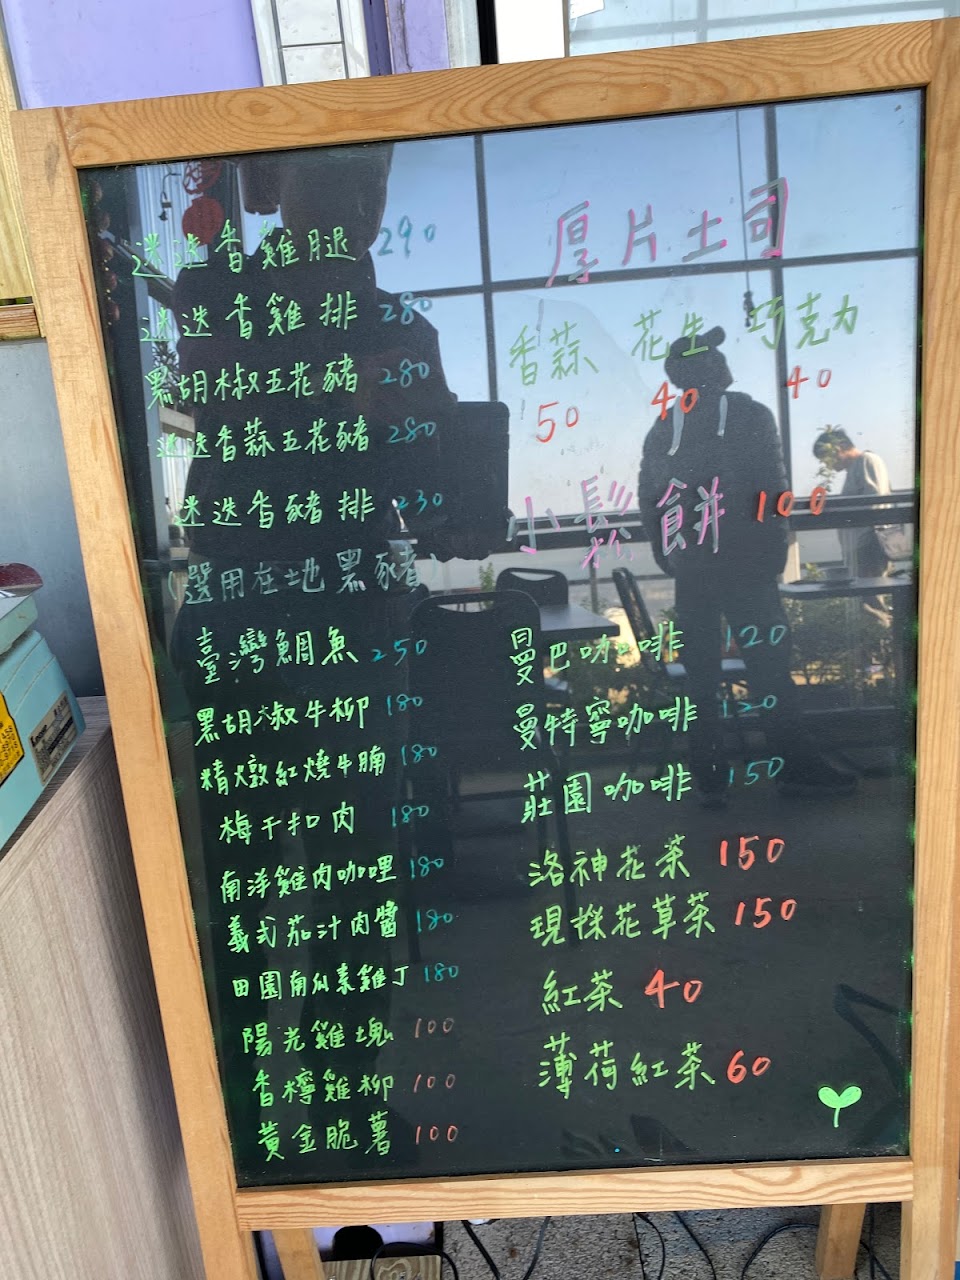 迷迭香雞腿 290
迷迭香雞排 280
黑胡椒五花豬 280
迷迭香蒜五花豬 280
迷迭香豬排 230
(選用在地黑豬)
臺灣鯛魚 250
黑胡椒牛柳 180
精燉紅燒牛腩 180
梅干扣肉 180
南洋雞肉咖哩 180
義式茄汁肉醬 180
田園南瓜素雞丁 180
陽光雞塊 100
香檸雞柳 100
黃金脆薯 100
厚片土司
香蒜 花生 巧克力
50 40 40
小鬆餅 100
曼巴咖啡 120
曼特寧咖啡 120
莊園咖啡 150
洛神花茶 150
現採花草茶 150
紅茶 40
薄荷紅茶 60